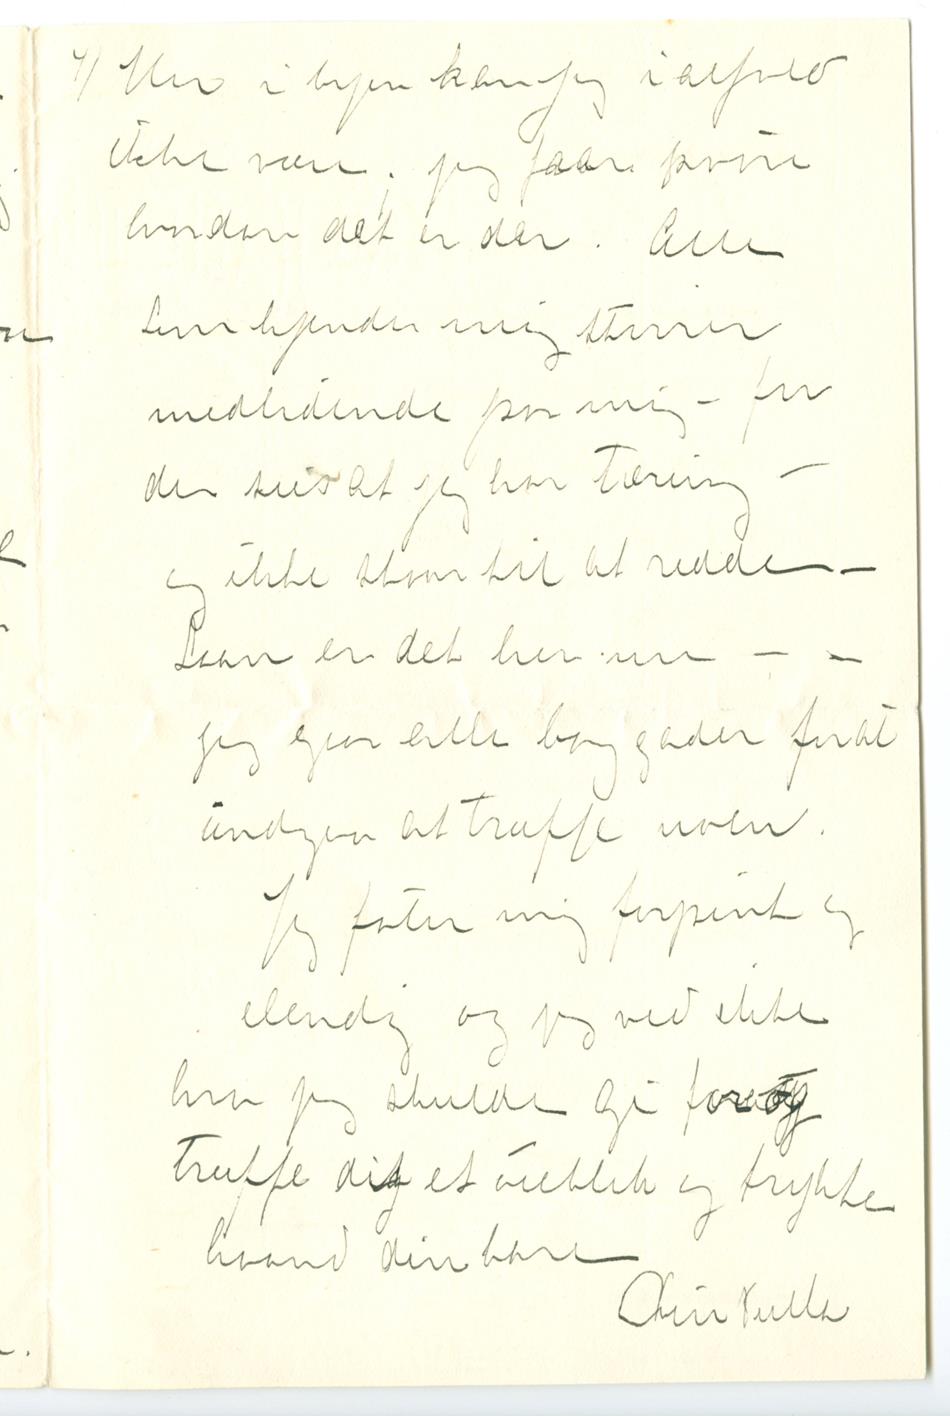 4) Her i byen kan jeg ialfald
ikke være, jeg faar prøve
hvordan det er der. Alle
som kjender mig stirrer
medlidende paa mig – for
der sies at jeg har tæring –
og ikke staar til at redde –
Saan er det her nu – –
jeg gaar alle baggader forat
undgaa at træffe noen.
Jeg føler mig forpint og
elendig og jeg ved ikke
hva jeg skulde gi for at
træffe dig et øieblik og trykke
haand din bare
Din Tulla